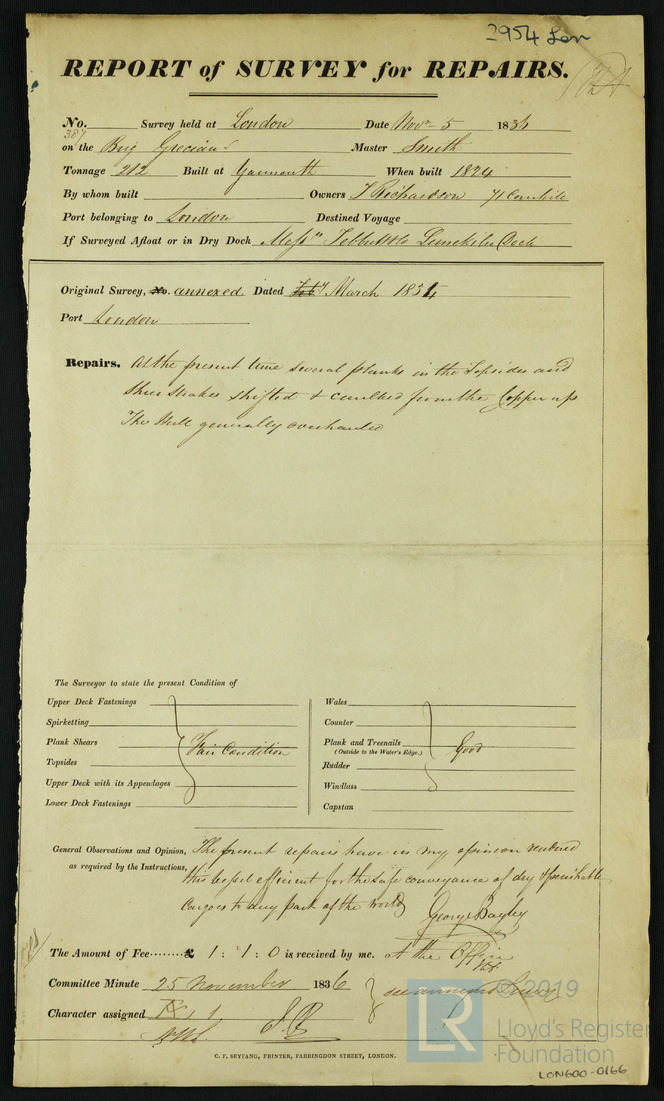 2954 Lon
REPORT of SURVEY for REPAIRS.
No. 387 Survey held at London Date Novr 5 1836
on the Brig Grecian Master Smith
Tonnage 212 Built at Yarmouth When built 1824
By whom built Owners T Richardson 71 Cornhill
Port belonging to London Destined Voyage
If Surveyed Afloat or in Dry Dock Messrs Tebbutts Limekiln Dock
Original Survey, No. annexed Dated Feby March 1834
Port London
Repairs. At the present time several planks in the Topsides and
Sheer Strakes shifted & caulked from the Copper up
The Hull generally overhauled
The Surveyor to state the present Condition of
Upper Deck Fastenings
Spirketting
Plank Shears
Topsides
Upper Deck with its Appendages
Lower Deck Fastenings
Fair Condition
Wales
Counter
Plank and Treenails
(Outside to the Water's Edge.)
Rudder
Windlass
Capstan
Good
General Observations and Opinion, The present repairs have in my opinion rendered
as required by the Instructions, this vessel efficient for the safe conveyance of dry & perishable
Cargoes to any part of the World
George Bayley
The Amount of Fee £ 1 : 1 : 0 is received by me. at the Office
Committee Minute 25 November 1836
see annexed Survey
Character assigned
C. F. SEYFANG, PRINTER, FARRINGDON STREET, LONDON.
LR
© 2019
Lloyd's Register
Foundation
LON600-0166